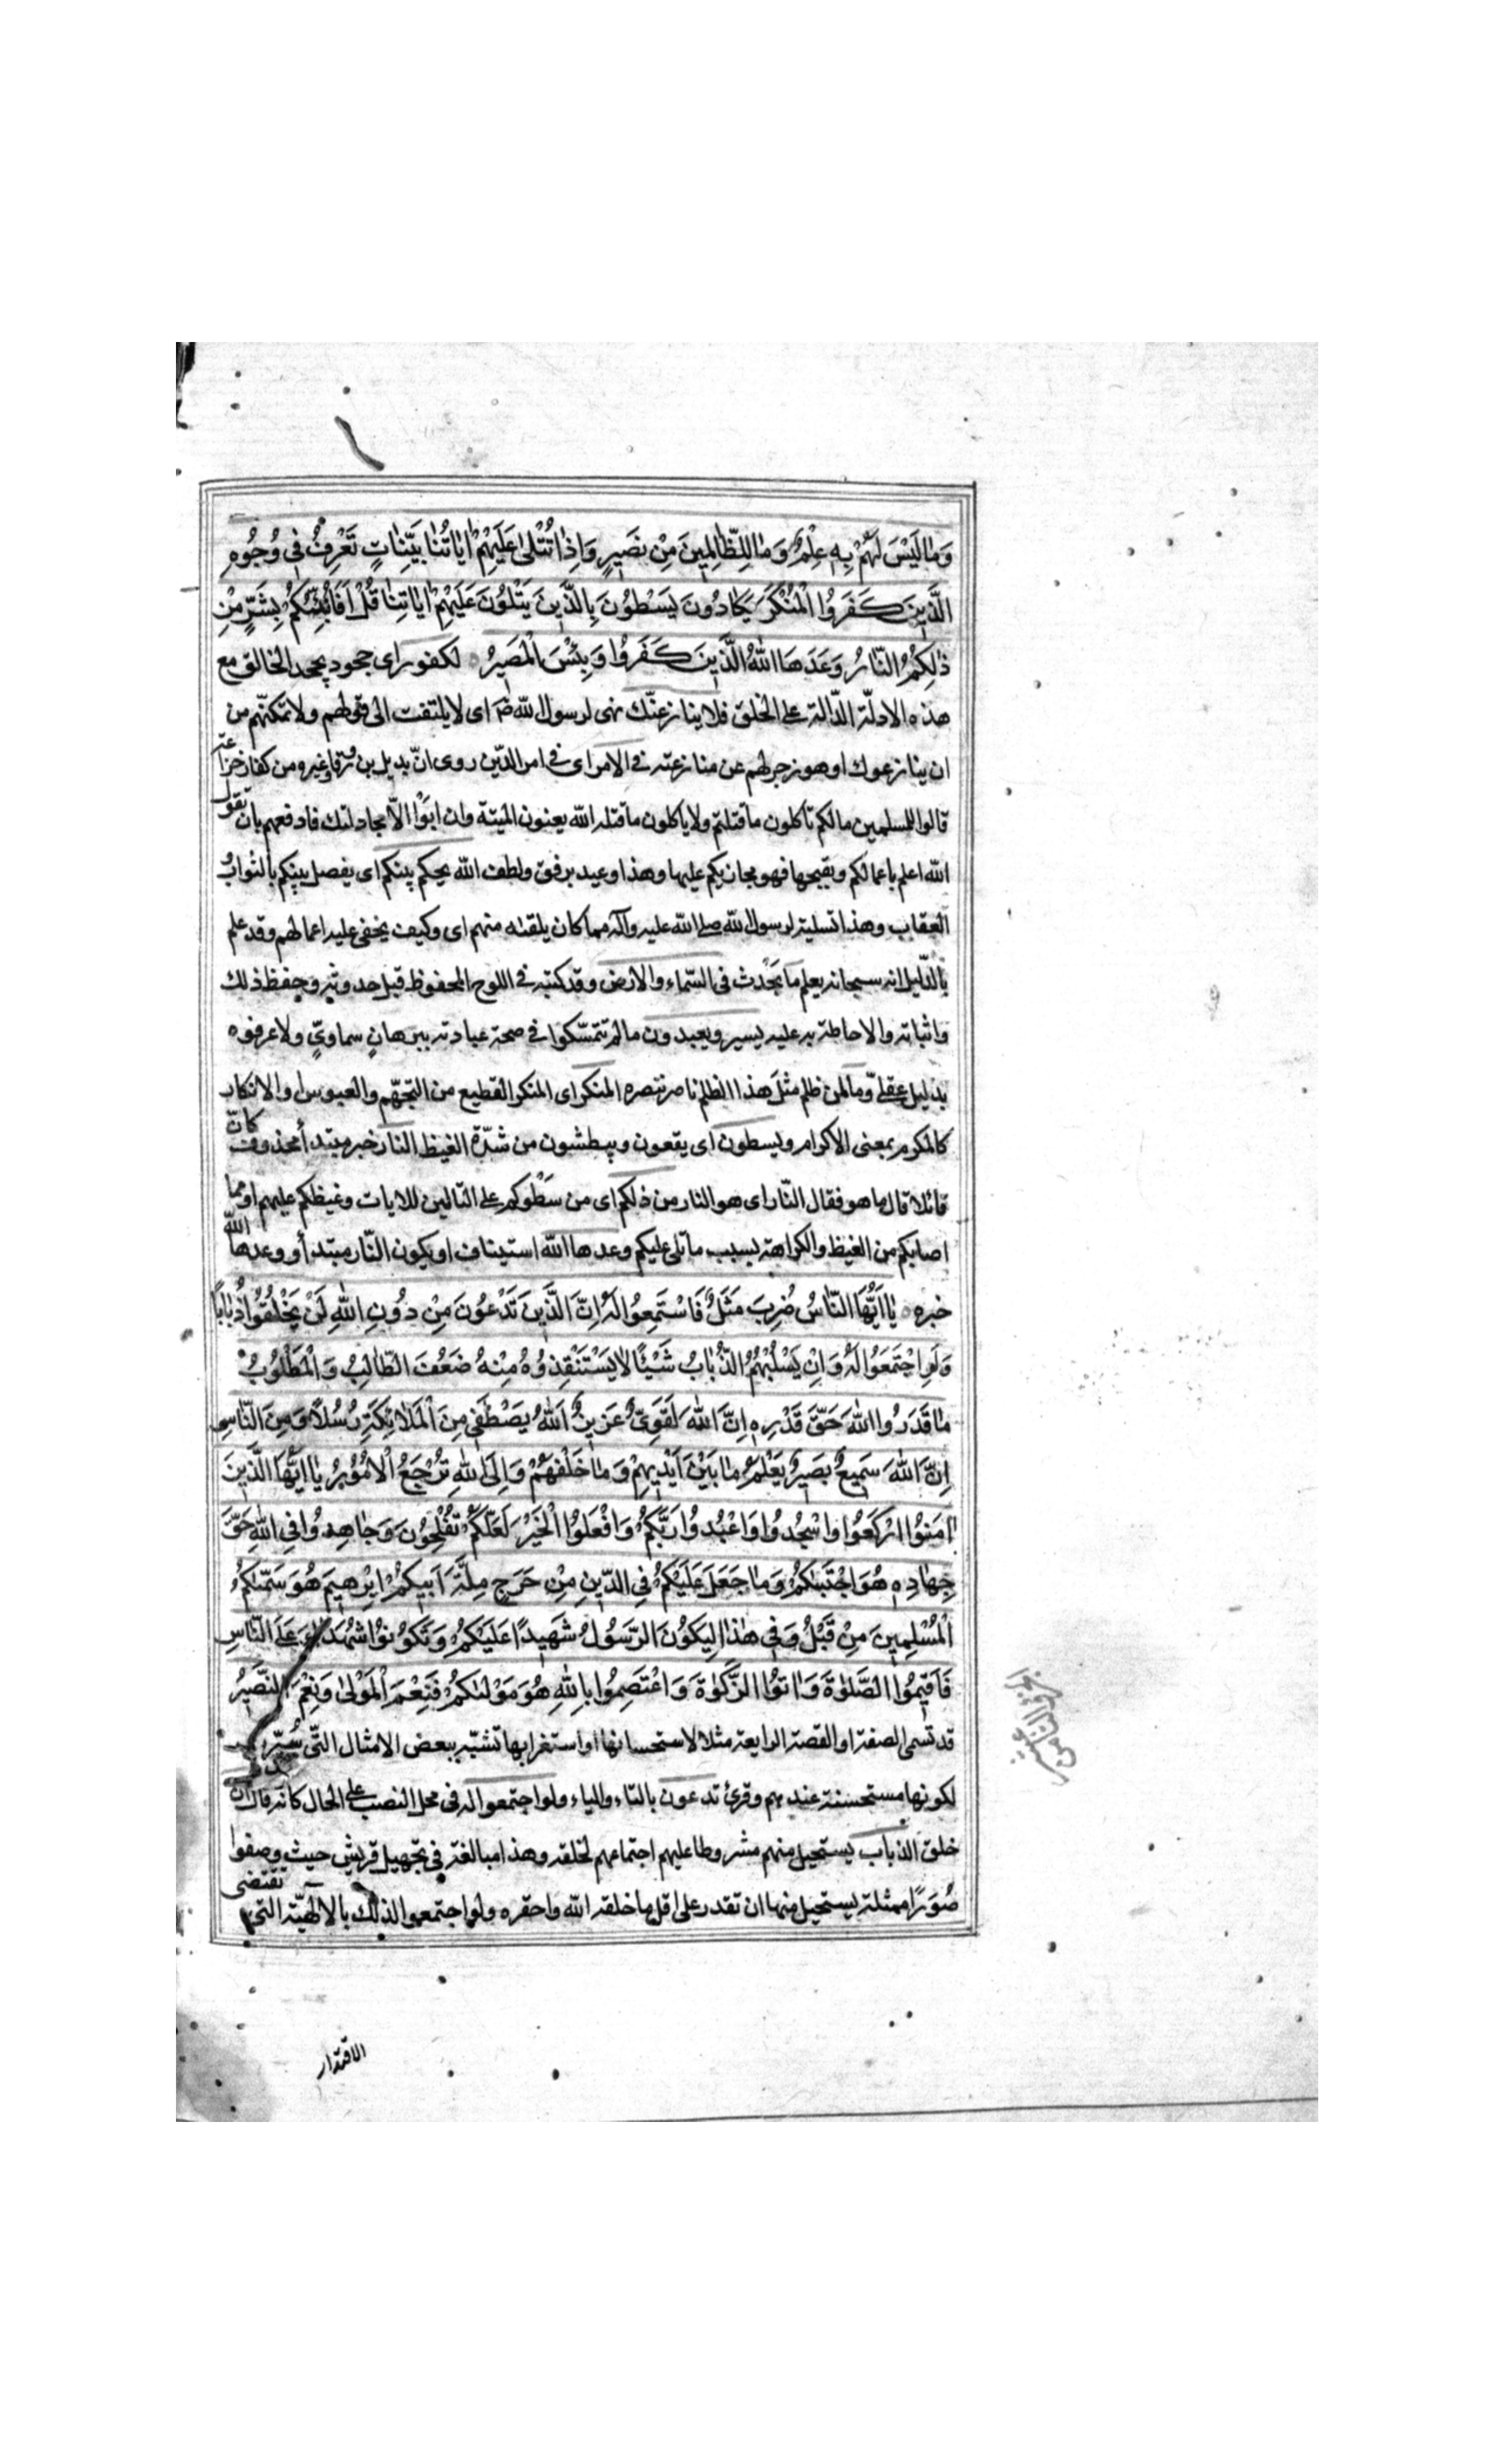 وَمٰا لَيْسَ لَهُمْ بِهِ عِلْمٌ وَمٰا لِلظّٰالِمِينَ مِنْ نَصِيرٍ وَاِذٰا تُتْلىٰ عَلَيْهِمْ اٰيٰاتُنٰا بَيِّنٰاتٍ تَعْرِفُ فِي وُجُوهِ
الَّذِينَ كَفَرُوا الْمُنْكَرَ يَكٰادُونَ يَسْطُونَ بِالَّذِينَ يَتْلُونَ عَلَيْهِمْ اٰيٰاتِنٰا قُلْ اَفَاُنَبِّئُكُمْ بِشَرٍّ مِنْ
ذٰلِكُمُ النّٰارُ وَعَدَهَا اللّٰهُ الَّذِينَ كَفَرُوا وَبِئْسَ الْمَصِيرُ لكفور اى جحود يجحد الخالق مع
هذه الادلّة الدّالة على الخلق فلا ينازعنّك نهى لرسول الله ص اى لا يلتفت الى قولهم ولا تمكنّهم من
ان ينازعوك او هو زجر لهم عن منازعته فى الامر اى فى امر الدّين روى انّ بديل بن ورقا وغيره من كفار خزاعة
قالوا للمسلمين مالكم تاكلون ما قتلتم ولا ياكلون ما قتله الله يعنون الميتة وان ابَوْا الاّ مجادلتك فادفعهم بان تقول
الله اعلم باعمالكم وبقبحها فهو مجازيكم عليها وهذا وعيد برفق ولطف الله يحكم بينكم اى يفصل بينكم بالثواب و
العقاب وهذا تسلية لرسول الله صلى الله عليه وآله مما كان يلقٰه منهم اى وكيف يخفى عليه اعمالهم وقد علم
بالدّليل انه سبحانه يعلم ما يَحْدُث فى السّماء والارض وقد كتبه فى اللوح المحفوظ قبل حدوثه وحفظ ذلك
واثباته والاحاطة به عليه يسير ويعبدون ما لم تتمسّكوا فى صحة عبادته ببرهانٍ سماويٍّ ولا عرفوه
بدليل عقلىّ وما لمن ظلم مثلَ هذا الظلم ناصر تنصره المنكر اى المنكر الفظيع من التجهّم والعبوس او الانكار
كالمكرم بمعنى الاكرام ويسطون اى يقعون ويبطشون من شدّة الغيظ النار خبر مبتدأ محذوف كانّ
قائلا قال ما هو فقال النّار اى هو النار من ذلكم اى من سَطْوكم على التالين للايات وغيظكم عليهم او مما
اصابكم من الغيظ والكراهة بسبب ما تلى عليكم وعدها الله استيناف او يكون النّار مبتدأ ووعدها الله
خبره يٰا اَيُّهَا النّٰاسُ ضُرِبَ مَثَلٌ فَاسْتَمِعُوا لَهُ اِنَّ الَّذِينَ تَدْعُونَ مِنْ دُونِ اللّٰهِ لَنْ يَخْلُقُوا ذُبٰاباً
وَلَوِ اجْتَمَعُوا لَهُ وَاِنْ يَسْلُبْهُمُ الذُّبٰابُ شَيْئًا لا يَسْتَنْقِذُوهُ مِنْهُ ضَعُفَ الطّٰالِبُ وَالْمَطْلُوبُ
مٰا قَدَرُوا اللّٰهَ حَقَّ قَدْرِهِ اِنَّ اللّٰهَ لَقَوِيٌّ عَزِيزٌ اَللّٰهُ يَصْطَفِي مِنَ الْمَلٰائِكَةِ رُسُلاً وَمِنَ النّٰاسِ
اِنَّ اللّٰهَ سَمِيعٌ بَصِيرٌ يَعْلَمُ مٰا بَيْنَ اَيْدِيهِمْ وَمٰا خَلْفَهُمْ وَاِلَى اللّٰهِ تُرْجَعُ الْاُمُورُ يٰا اَيُّهَا الَّذِينَ
اٰمَنُوا ارْكَعُوا وَاسْجُدُوا وَاعْبُدُوا رَبَّكُمْ وَافْعَلُوا الْخَيْرَ لَعَلَّكُمْ تُفْلِحُونَ وَجٰاهِدُوا فِي اللّٰهِ حَقَّ
جِهٰادِهِ هُوَ اجْتَبٰكُمْ وَمٰا جَعَلَ عَلَيْكُمْ فِي الدِّينِ مِنْ حَرَجٍ مِلَّةَ اَبِيكُمْ اِبْرٰهِيمَ هُوَ سَمّٰكُمُ
الْمُسْلِمِينَ مِنْ قَبْلُ وَفِي هٰذٰا لِيَكُونَ الرَّسُولُ شَهِيدًا عَلَيْكُمْ وَتَكُونُوا شُهَدٰاءَ عَلَى النّٰاسِ
فَاَقِيمُوا الصَّلٰوةَ وَاٰتُوا الزَّكٰوةَ وَاعْتَصِمُوا بِاللّٰهِ هُوَ مَوْلٰكُمْ فَنِعْمَ الْمَوْلىٰ وَنِعْمَ النَّصِيرُ
قد تسمى الصفة او القصة الرايعة مثلا لاستحسانها او استغرابها تشبّه ببعض الامثال التّى سُيّرت
لكونها مستحسنة عندهم وقرئ تدعون بالتاء والياء ولو اجتمعوا له فى محل النصب على الحال كانه قال ان
خلق الذباب يستحيل منهم مشروطا عليهم اجتماعهم لخلقه وهذا مبالغة فى تجهيل قريش حيث وصفوا
صُوَرًا ممثلة يستحيل منها ان تقدر على اقل ما خلقه الله واحقره ولو اجتمعوا لذلك بالالهيّة التى تقتضى
الاقتدار